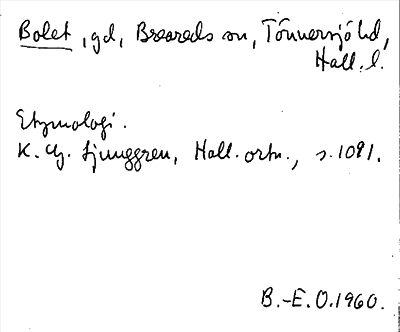 Bolet, gd, Breareds sn, Tönnersjö hd,
Hall. l.
Etymologi.
K. G. Ljunggren, Hall. ortn., s. 109 f.
B.-E. O. 1960.